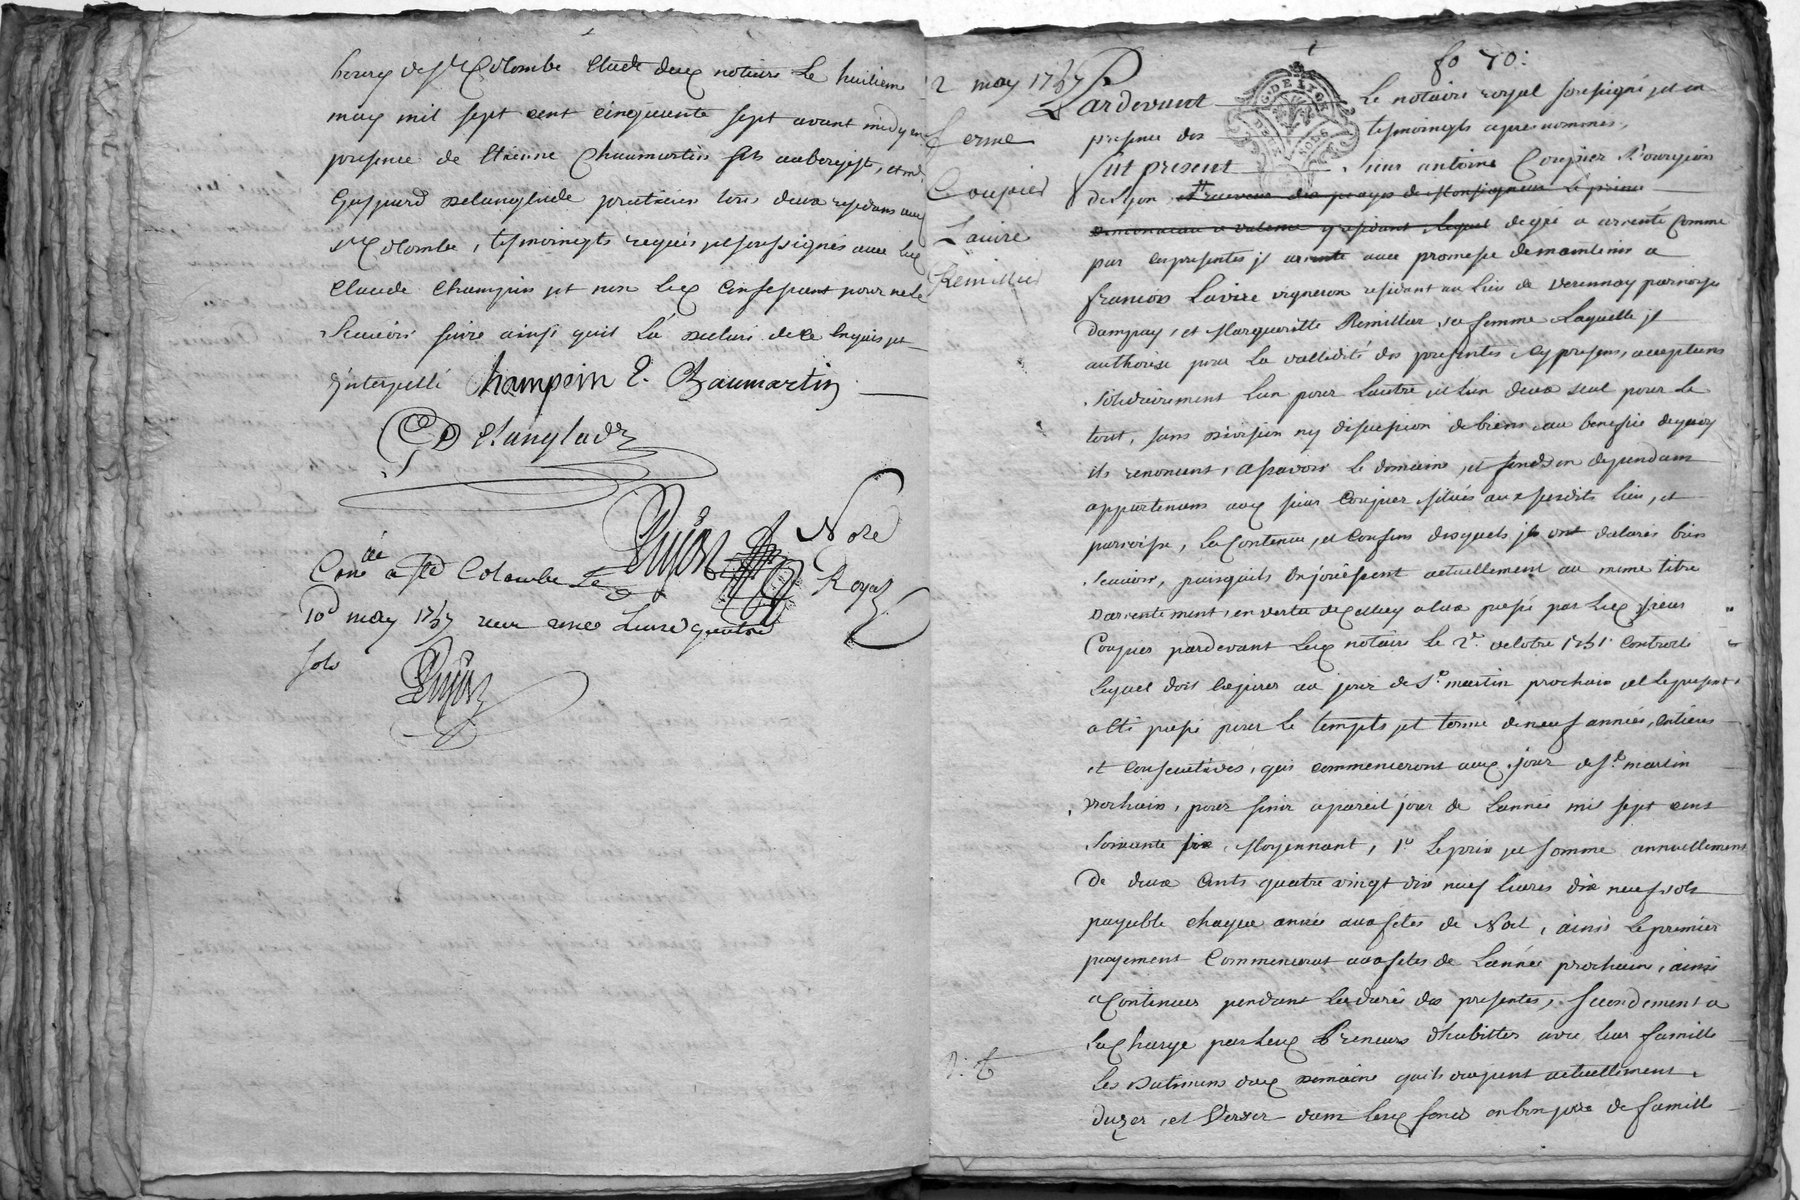 bourg de Ste Colombe Etude dud notaire Le huitieme
may mil sept cent cinquante sept avant midy en
presence de Etienne Chaumartin fils aubergiste, et me
Gaspard Delanglade praticien tous deux residans aud
Ste Colombe, tesmoingts requis et soussignés avec led
Claude Champin et non led pour ne le
Scavoir faire ainsi quil La declaré de ce enquis et
interpellé Champoin E. Chaumartin
G Delanglade
Dujast Nore
Royal
Conlé a Ste Colombe Le
10e may 1757 receu douze sols
sols
Dujast
fo 70:
2 may 1757
ferme
Coupier
Lavire
Remillier
G. DE LYON
Pardevant Le notaire royal soussigné et en
presence des tesmoingts apres nommés,
fut present sieur antoine Coupier Bourgeois
de Lyon et receveur des peages de Monseigneur Le prince
de monaco a valence y residant lequel de gré a arrenté comme
par ces presentes il arrente avec promesse de maintenir a
francois Lavire vigneron residant au lieu de verennay parroisse
dampuy, et Margueritte Remillier sa femme Laquelle il
authorise pour La vallidité des presentes icy presens, acceptans
solidairement Lun pour Lautre et Lun deux seul pour Le
tout, sans division ny discussion de biens au benefice dequoy
ils renoncent, a scavoir Le domaine et fonds en dependam
appartenans aud sieur Coupier situés aux susdits lieu, et
parroisse, La Contenue, et Confins desquels ils ont declarés bien
Scavoir, puisquils en jouissent actuellement au meme titre
darrentement, en vertu de Celluy a eux passé par Led sieur
Coupier pardevant Led notaire Le 2e octobre 1751 Controllé
Lequel doit Expirer au jour de St martin prochain et Le present
a eté passé pour Le tempts et terme de neuf années, entieres
et consecutives, qui commenceront aud jour de St martin
prochain, pour finir a pareil jour de Lannée mil sept cens
soixante six, Moyennant, 1o Le prix et somme annuellement
De deux Cents quatre vingt dix neuf livres dix neuf sols
payable chaque année aux fêtes de Noel, ainsi Le premier
payement Commencera aux fetes de Lannée prochaine, ainsi
a Continuer pendant La durée des presentes, Secondement a
La Charge par Lesd Preneurs d'habitter avec leur famille
Les Batimens dud domaine quils occupent actuellement,
duzer, et Verser dans Lesd fonds en bon pere de famille